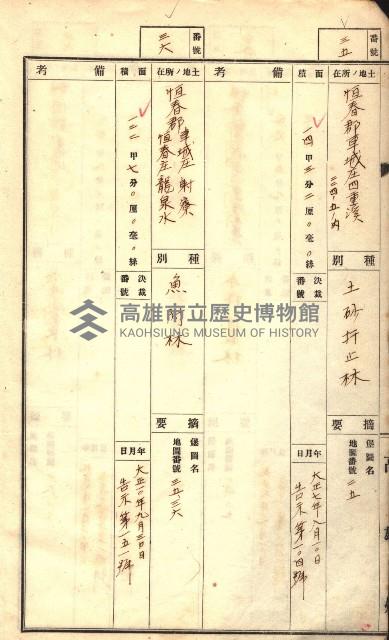 番號
三五
土地ノ所在
恒春郡車城庄四重溪
二四ノ五ノ內
面積
一四甲三分二厘〇毫〇絲
備考
種別
土砂扞止林
決裁番號
摘要
堡圖名
地圖番號 三五
年月日
大正七年八月一〇日
告示第一〇四號
番號
三六
土地ノ所在
恒春郡車城庄射寮
恒春庄龍泉水
面積
一二二甲七分〇厘〇毫〇絲
備考
種別
魚附林
決裁番號
摘要
堡圖名
地圖番號 三五、三六
年月日
大正一〇年九月三〇日
告示第一五一號
高雄市立歷史博物館
KAOHSIUNG MUSEUM OF HISTORY